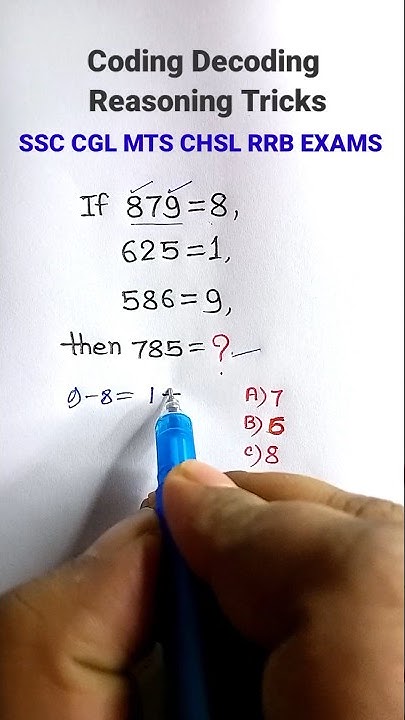 Coding Decoding
Reasoning Tricks
SSC CGL MTS CHSL RRB EXAMS
If 879=8,
625=1,
586=9,
then 785=?
9-8= 1+
A) 7
B) 5
C) 8